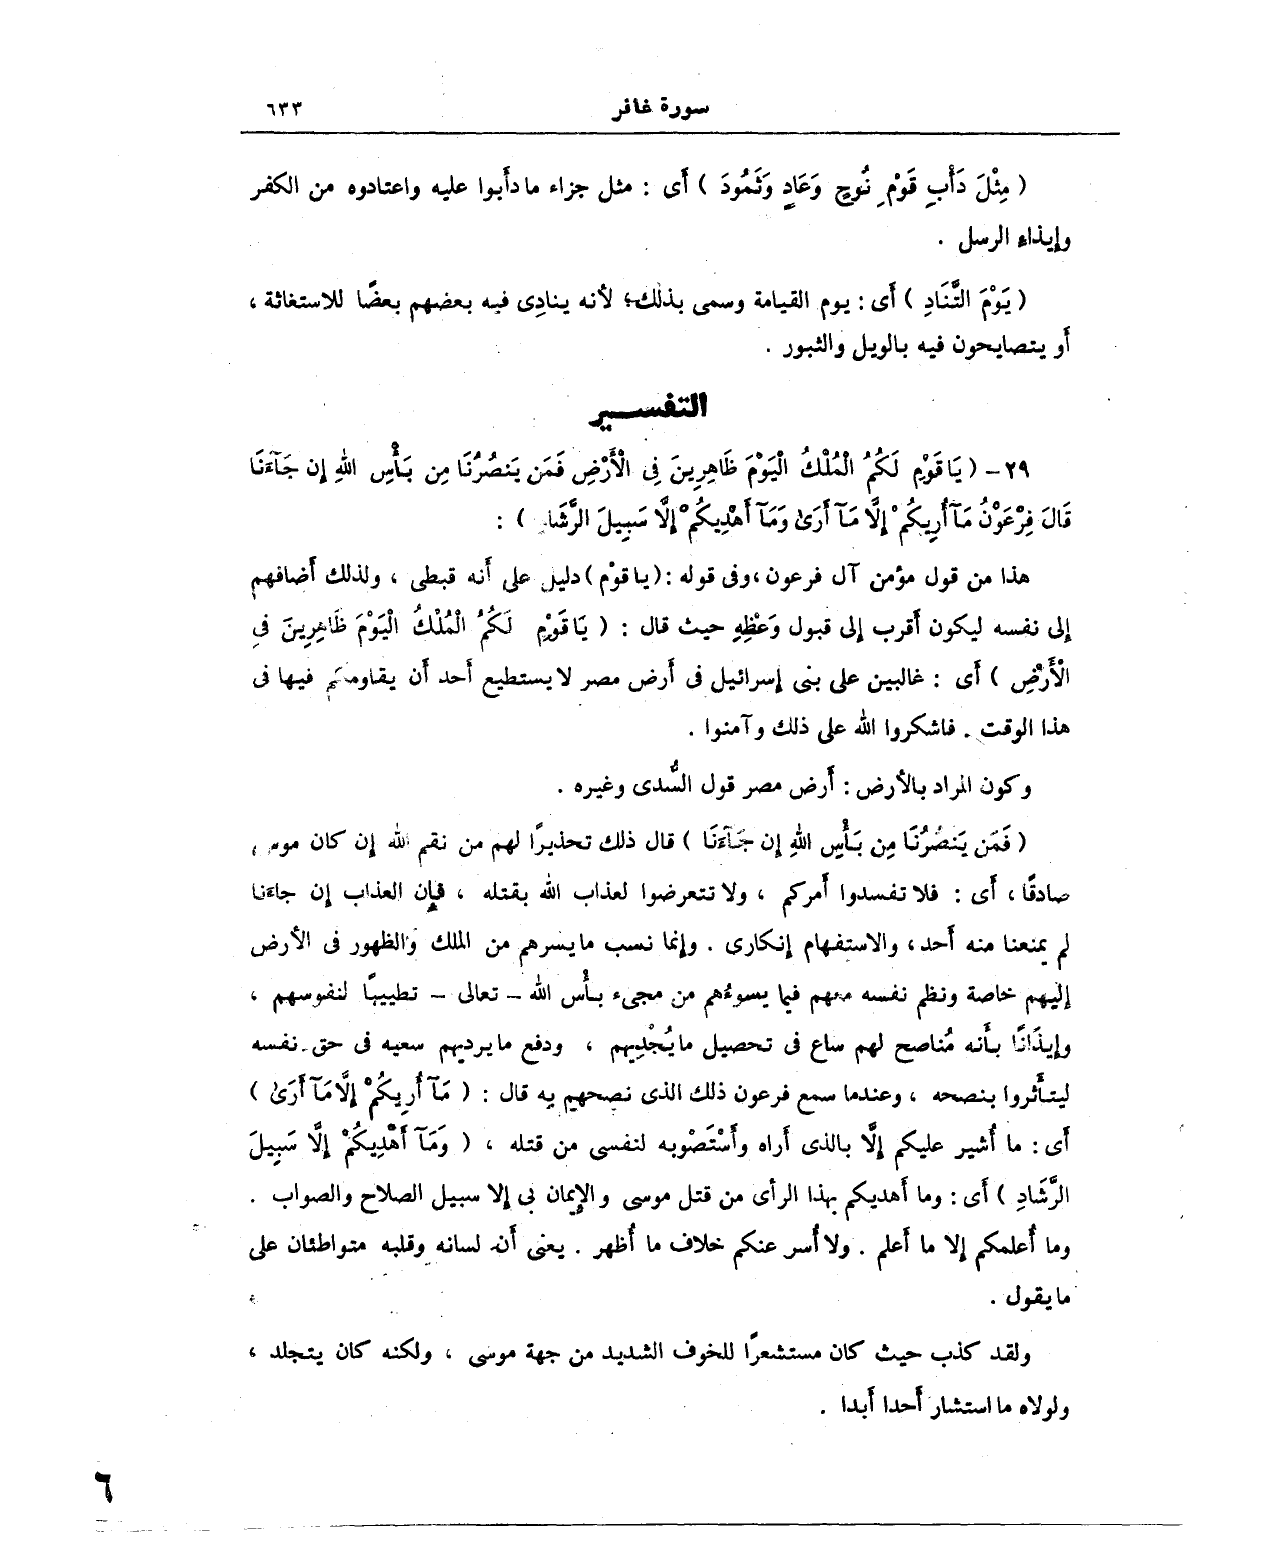 سورة غافر ٦٣٣
( مِثْلَ دَأْبِ قَوْمِ نُوحٍ وَعَادٍ وَثَمُودَ ) أَى : مثل جزاء ما دأَبوا عليه واعتادوه من الكفر
وإيذاء الرسل .
( يَوْمَ التَّنَادِ ) أَى : يوم القيامة وسمى بذلك؛ لأنه ينادِى فيه بعضهم بعضًا للاستغاثة ،
أو يتصايحون فيه بالويل والثبور .
التفسـير
٢٩ – ( يَا قَوْمِ لَكُمُ الْمُلْكُ الْيَوْمَ ظَاهِرِينَ فِى الْأَرْضِ فَمَن يَنصُرُنَا مِن بَأْسِ اللهِ إِن جَآءَنَا
قَالَ فِرْعَوْنُ مَآ أُرِيكُمْ إِلَّا مَآ أَرَىٰ وَمَآ أَهْدِيكُمْ إِلَّا سَبِيلَ الرَّشَادِ ) :
هذا من قول مؤمن آل فرعون ، وفى قوله : ( يا قوْم ) دليل على أَنه قبطى ، ولذلك أَضافهم
إلى نفسه ليكون أَقرب إلى قبول وَعْظِهِ حيث قال : ( يَا قَوْمِ لَكُمُ الْمُلْكُ الْيَوْمَ ظَاهِرِينَ فِى
الْأَرْضِ ) أَى : غالبين على بنى إسرائيل فى أَرض مصر لا يستطيع أحد أَن يقاومكم فيها فى
هذا الوقت . فاشكروا الله على ذلك وآمنوا .
وكون المراد بالأَرض : أَرض مصر قول السُّدى وغيره .
( فَمَن يَنصُرُنَا مِن بَأْسِ اللهِ إِن جَآءَنَا ) قال ذلك تحذيرًا لهم من نقم الله إن كان موسى
صادقًا ، أَى : فلا تفسدوا أَمركم ، ولا تتعرضوا لعذاب الله بقتله ، فإن العذاب إن جاءنا
لم يمنعنا منه أَحد ، والاستفهام إنكارى . وإنما نسب ما يسرهم من الملك والظهور فى الأَرض
إليهم خاصة ونظم نفسه معهم فيما يسوءُهم من مجىء بأْس الله – تعالى – تطييبًا لنفوسهم ،
وإيذَانًا بأَنه مُناصح لهم ساع فى تحصيل ما يُجْدِيهم ، ودفع ما يرديهم سعيه فى حق نفسه
ليتأَثروا بنصحه ، وعندما سمع فرعون ذلك الذى نصحهم به قال : ( مَآ أُرِيكُمْ إِلَّا مَآ أَرَىٰ )
أَى : ما أُشير عليكم إلَّا بالذى أَراه وأَسْتَصْوبه لنفسى من قتله ، ( وَمَآ أَهْدِيكُمْ إِلَّا سَبِيلَ
الرَّشَادِ ) أَى : وما أَهديكم بهذا الرأى من قتل موسى والإيمان بى إلا سبيل الصلاح والصواب .
وما أُعلمكم إلا ما أَعلم . ولا أُسر عنكم خلاف ما أُظهر . يعنى أَن لسانه وقلبه متواطئان على
ما يقول .
ولقد كذب حيث كان مستشعرًا للخوف الشديد من جهة موسى ، ولكنه كان يتجلد ،
ولولاه ما استشار أَحدا أَبدا .
٦